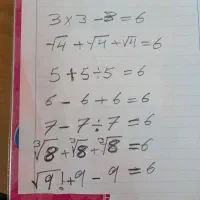 3×3-3=6
√4+√4+√4=6
5+5÷5=6
6-6+6=6
7-7÷7=6
∛8+∛8+∛8=6
√9!+9-9=6